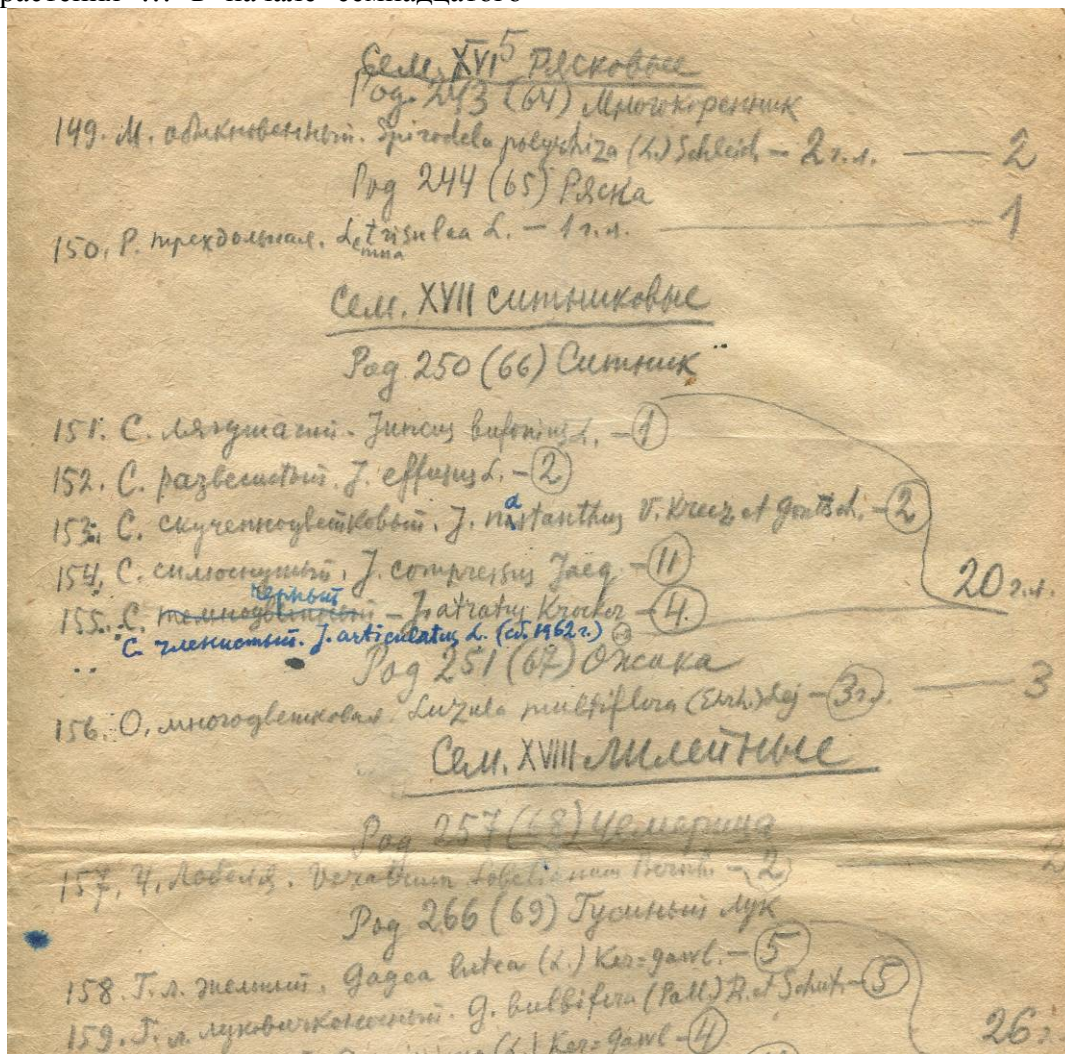 растения ... в начале семнадцатого
Сем. XVI 5 Рясковые
Род. 243 (64) Многокоренник
149. М. обыкновенный. Spirodela polyrhiza (L.) Schleid. — 2 г.л. — 2
Род 244 (65) Ряска
150. Р. трехдольная. Lemna trisulca L. — 1 г.л. — 1
Сем. XVII Ситниковые
Род 250 (66) Ситник
151. С. лягушачий. Juncus bufonius L. — 1
152. С. развесистый. J. effusus L. — 2
153. С. скученноцветковый. J. nastanthus V. Krecz. et Gontsch. — 2
154. С. сплюснутый. J. compressus Jacq. — 11
20 г.л.
черный
155. С. темноцветный — J. atratus Krocker — 4.
С. членистый. J. articulatus L. (сб. 1962 г.)
Род 251 (67) Ожика
156. О. многоцветковая. Luzula multiflora (Ehrh.) Lej — 3 г.л. — 3
Сем. XVIII Лилейные
Род 257 (68) Чемерица
157. Ч. Лобеля. Veratrum Lobelianum Bernh. — 2 — 2
Род 266 (69) Гусиный лук
158. Г. л. желтый. Gagea lutea (L.) Ker=Gawl. — 5
159. Г. л. луковичконосный. G. bulbifera (Pall.) R. et Schult. — 5
26
(L.) Ker=Gawl — 4